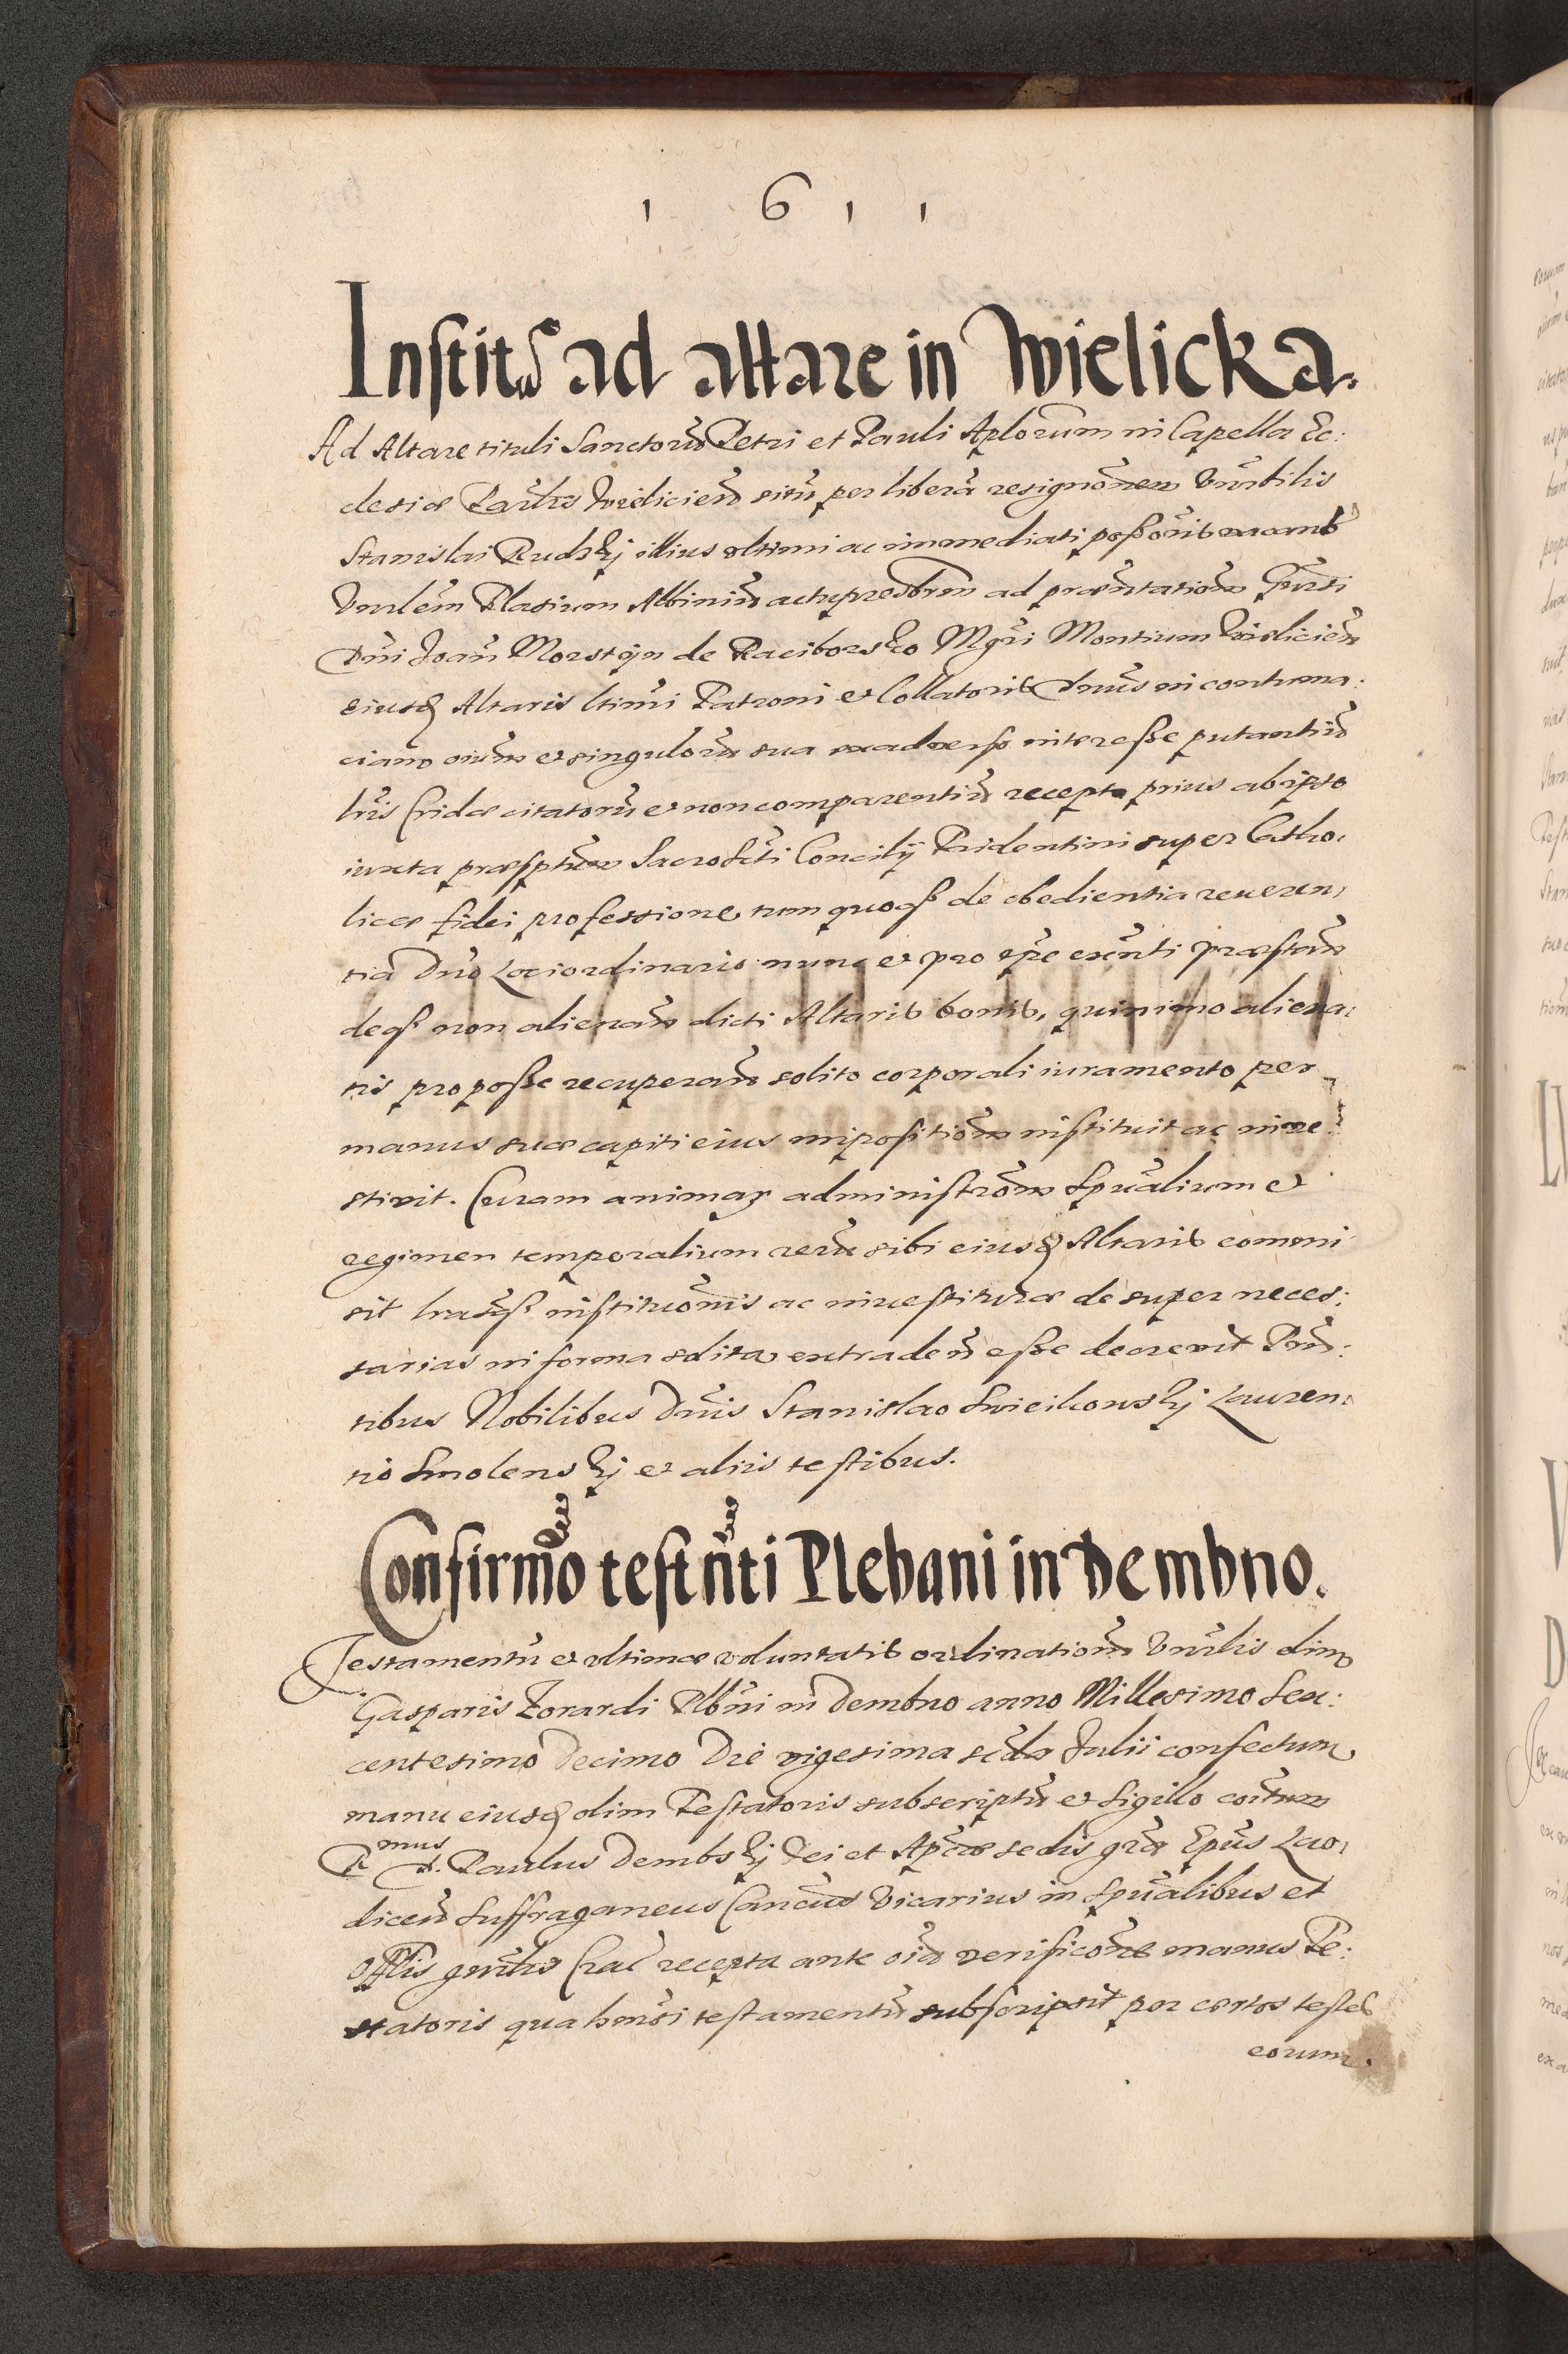 1 6 1 1
Instit͠o ad altare in Wielicka.
Ad Altare tituli Sanctorũ Petri et Pauli Aplorum in Capella Ec:
clesiæ Par͠lis Wieliciens̃ sitũ per liberã resigno͠nem Vn͠rbilis
Stanislai Rudskÿ illius vltimi ac immediati poßo͠ris vacans
Vnrle͠m Blasium Albiniũ actu pr͠esb͠rm ad præ͠ntatione͠ G͠nrsi
D͠ni Joa͠n Morstÿn de Raciborsko Mg͠ri Montium Wieliciens̃
eiusđ Altaris l͠timi Patroni et Collatoris D͠nus in contuma:
ciam oi͠um et singulorũ sua ex aduerso interesse putantiũ
l͠ris Cridæ citatorũ et non comparentiũ recepto prius ab ipso
iuxta præsp͠tum Sacros͠cti Concilÿ Tridentini super Catho:
licæ fidei professione, tum quoqȝ de obedientia reueren:
tia D͠no Loci ordinario nunc et pro t͠pe exñti præstan͠
deqȝ non alienan͠ dicti Altaris bonis, quinimo aliena:
tis pro posse recuperan͠ solito corporali iuramento per
manus suæ capiti eius impositione͠ instituit ac inue:
stivit. Curam animaꝝ administro͠nem Sp͠ualium et
regimen temporalium rerũ sibi eiusđ Altaris commi
sit l͠rasqȝ institutio͠nis ac inuestituræ de super neces:
sarias in forma solita extraden͠ esse decrevit P͠rn:
tibus Nobilibus D͠nis Stanislao Swieikowskÿ Lauren:
tio Smolenskÿ et aliis testibus.
Confirm͠o test͠nti Plebani in Dembno.
Testamentũ et vltimæ voluntatis ordinatione͠ Vn͠rlis olim
Gasparis Zorardi Plb͠ni in Dembno anno Millesimo Sex:
centesimo Decimo Die vigesima sc͠da Julii confectum
manu eiusđ olim Testatoris subscriptũ et Sigillo co͠itum
R<sup>mus</sup> D. Paulus Dembskÿ Dei et Ap͠cæ sedis gr͠a Ep͠us Lao:
dicen͠ Suffraganeus Can͠cus Vicarius in Sp͠ualibus et
Off͠lis gn͠rlis Crac͠ recepta ante oi͠a verifico͠ne manus Te:
statoris qua hm͠oi testamentũ subscripsit per certos testes
eorum.